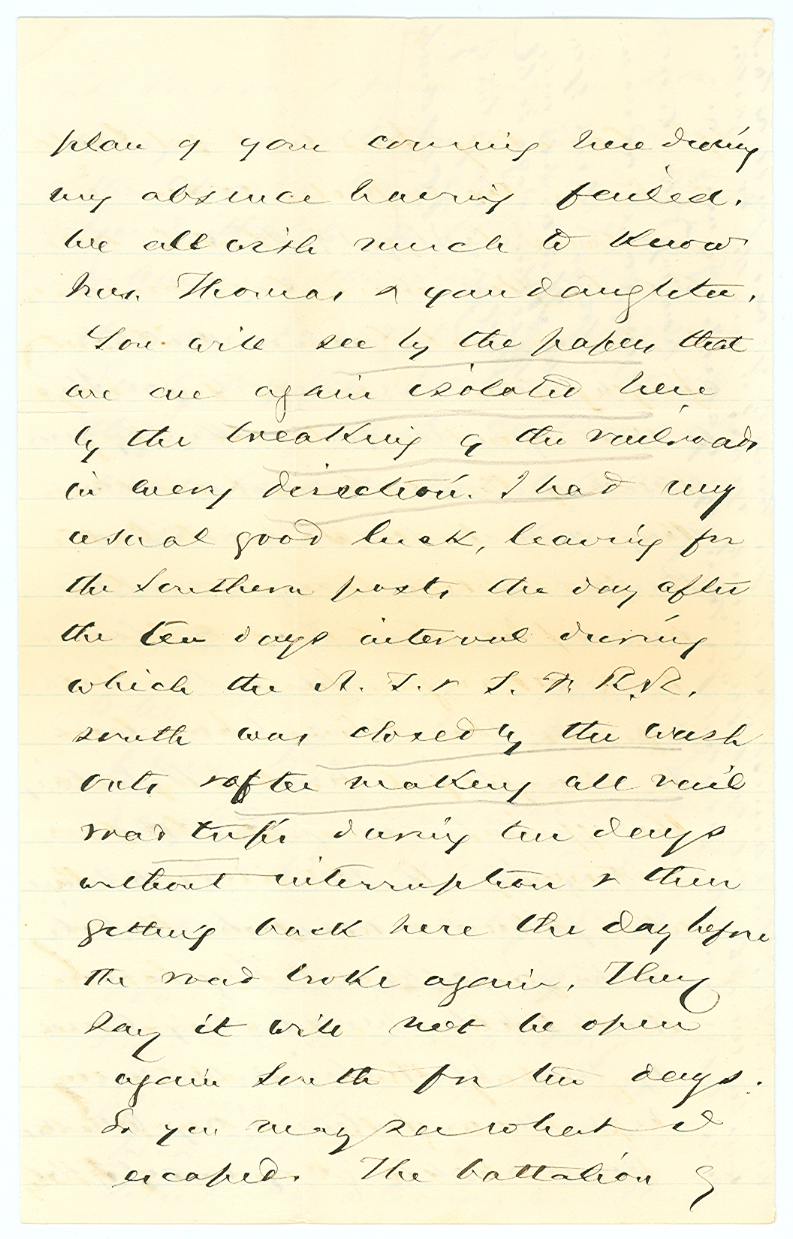 plan of your coming here during
my absence having failed.
We all wish much to know
Mrs. Thomas & your daughter.
You will see by the papers that
we are again isolated here
by the breaking of the railroads
in every direction. I had my
usual good luck, leaving for
the Southern posts the day after
the ten days interval during
which the A. T. & S. F. R.R.
south was closed by the wash
outs & after making all rail
road trips during ten days
without interruption & then
getting back here the day before
the road broke again. They
say it will not be open
again South for ten days.
So you may see what I
escaped. The battalion of